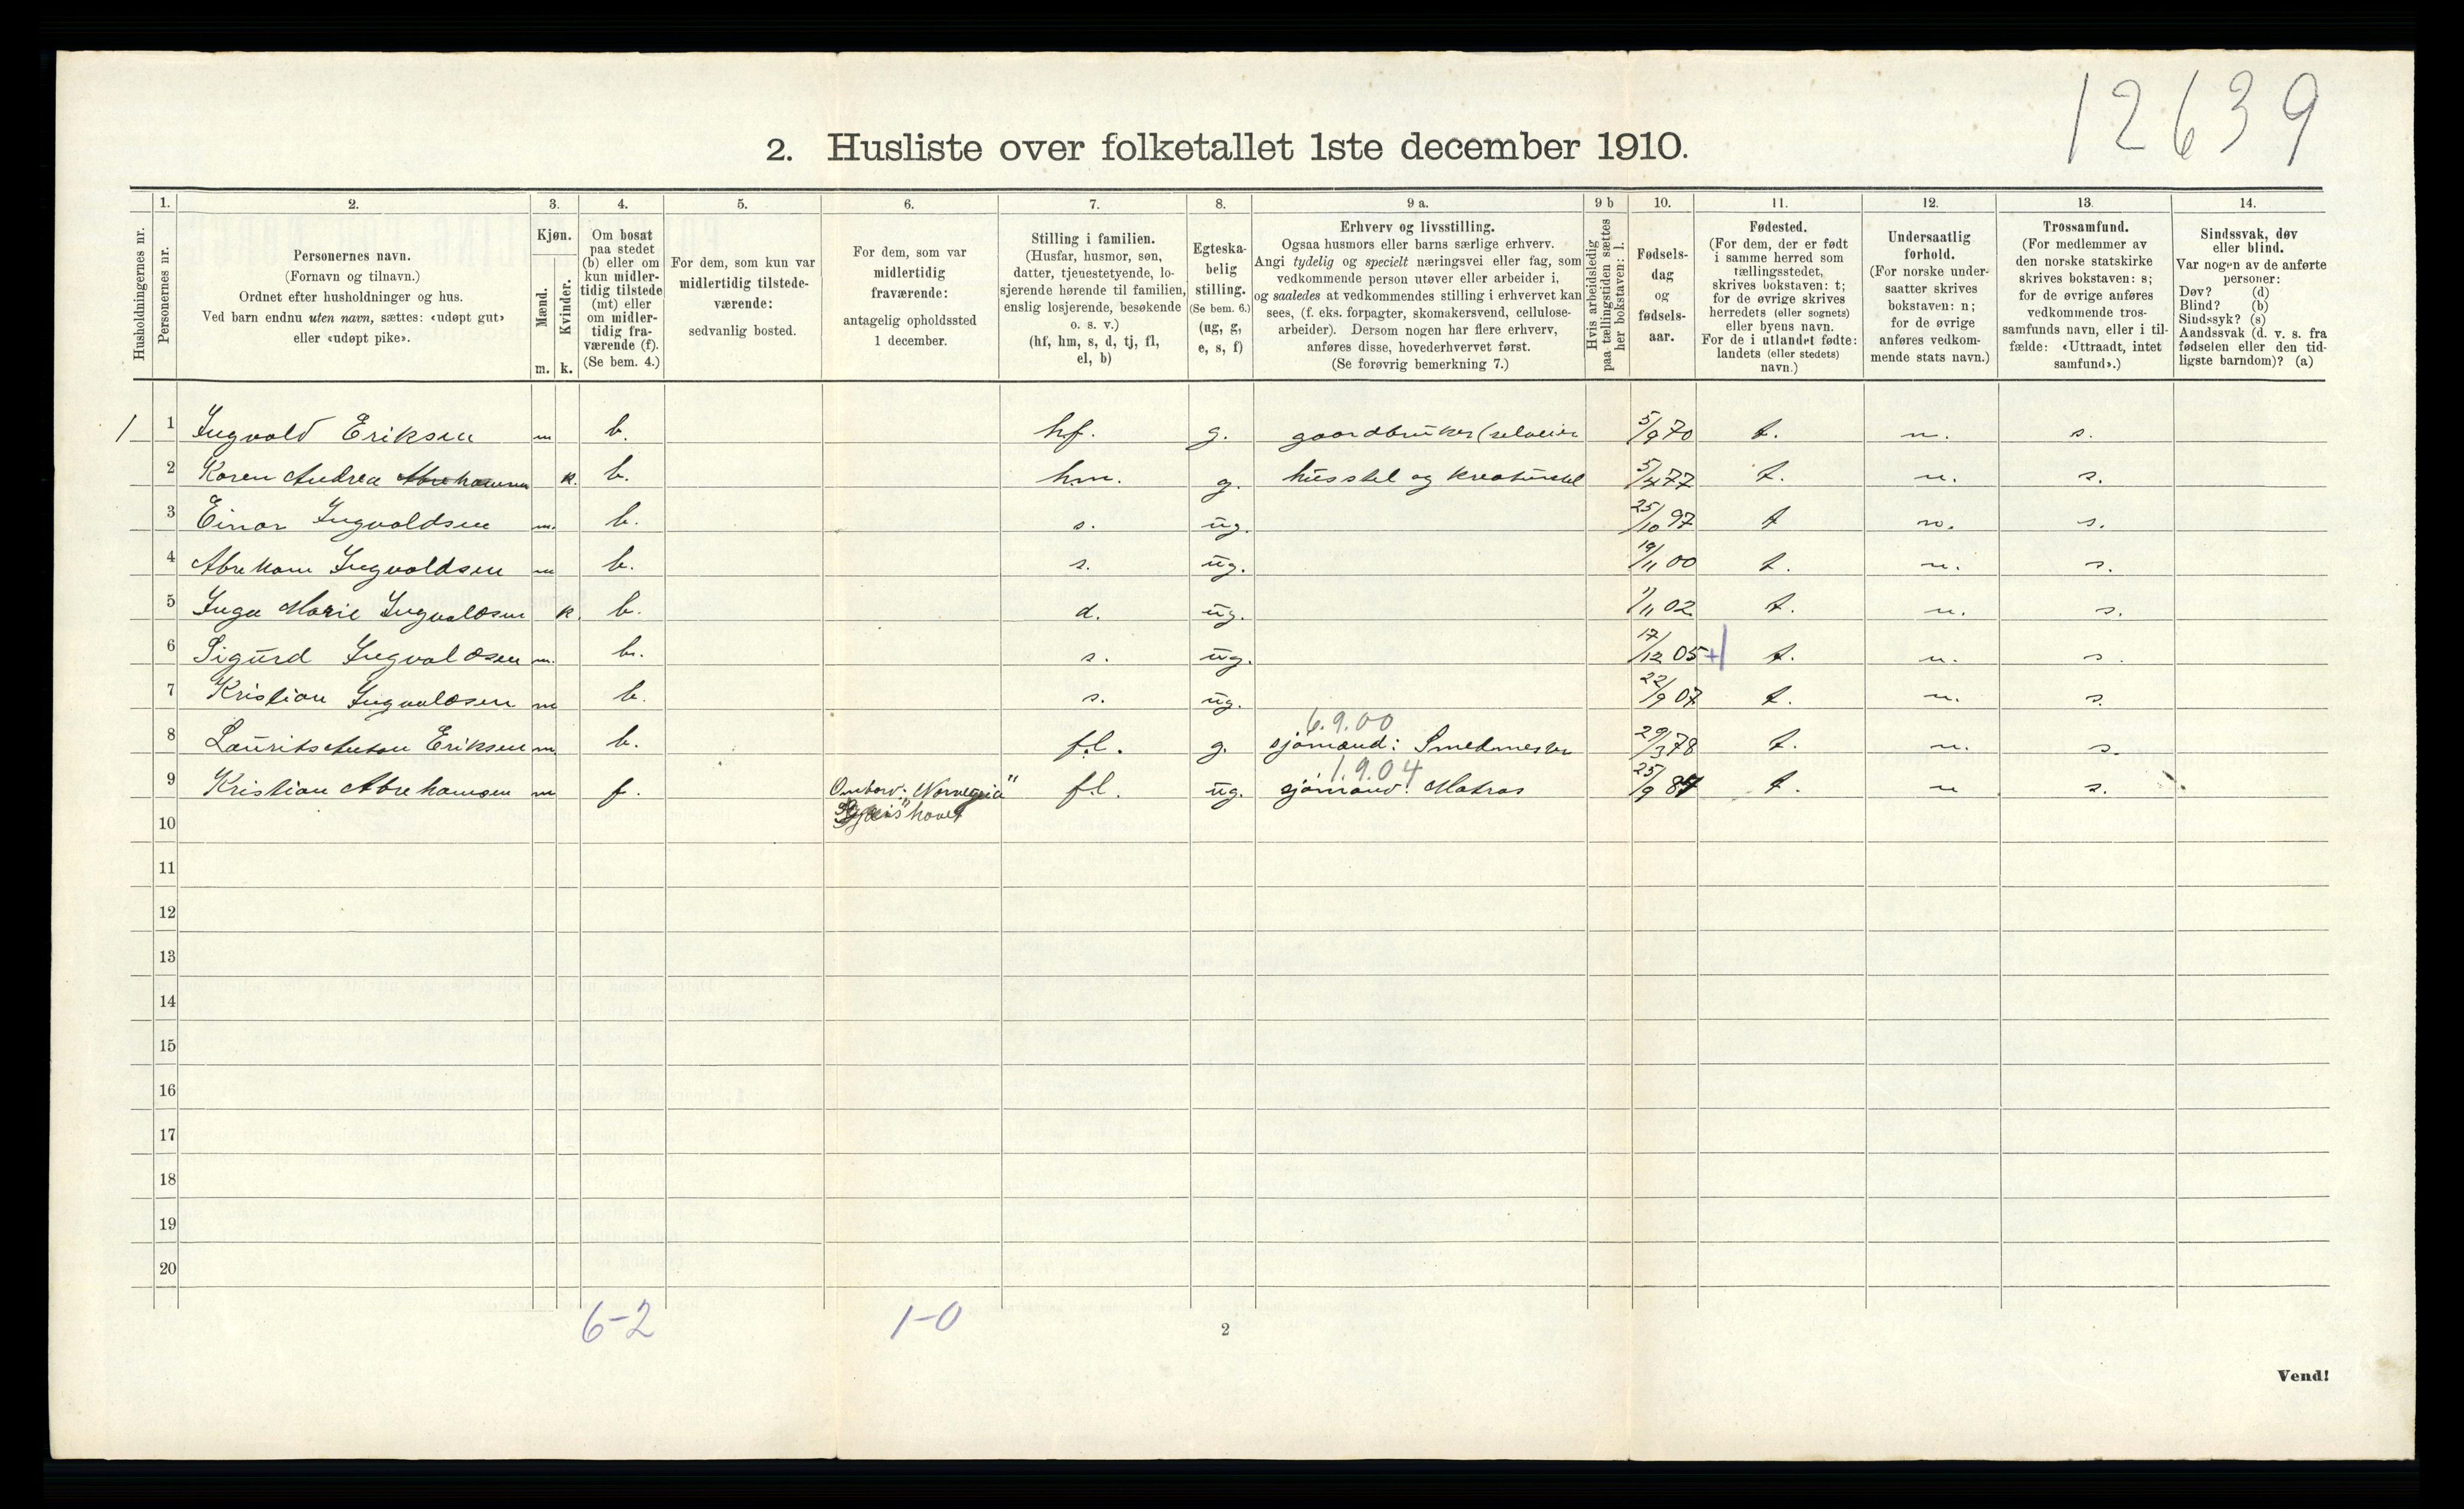 12639
2. Husliste over folketallet 1ste december 1910.
Husholdningernes nr.
1.
Personernes nr.
2.
Personernes navn.
(Fornavn og tilnavn.)
Ordnet efter husholdninger og hus.
Ved barn endnu uten navn, sættes: «udøpt gut»
eller «udøpt pike».
3.
Kjøn.
Mænd.
Kvinder.
m. k.
4.
Om bosat
paa stedet
(b) eller om
kun midler-
tidig tilstede
(mt) eller
om midler-
tidig fra-
værende (f).
(Se bem. 4.)
5.
For dem, som kun var
midlertidig tilstede-
værende:
sedvanlig bosted.
6.
For dem, som var
midlertidig
fraværende:
antagelig opholdssted
1 december.
7.
Stilling i familien.
(Husfar, husmor, søn,
datter, tjenestetyende, lo-
sjerende hørende til familien,
enslig losjerende, besøkende
o. s. v.)
(hf, hm, s, d, tj, fl,
el, b)
8.
Egteska-
belig
stilling.
(Se bem. 6.)
(ug, g,
e, s, f)
9 a.
Erhverv og livsstilling.
Ogsaa husmors eller barns særlige erhverv.
Angi tydelig og specielt næringsvei eller fag, som
vedkommende person utøver eller arbeider i,
og saaledes at vedkommendes stilling i erhvervet kan
sees, (f. eks. forpagter, skomakersvend, cellulose-
arbeider). Dersom nogen har flere erhverv,
anføres disse, hovederhvervet først.
(Se forøvrig bemerkning 7.)
9 b
Hvis arbeidsledig
paa tællingstiden sættes
her bokstaven: l.
10.
Fødsels-
dag
og
fødsels-
aar.
11.
Fødested.
(For dem, der er født
i samme herred som
tællingsstedet,
skrives bokstaven: t;
for de øvrige skrives
herredets (eller sognets)
eller byens navn.
For de i utlandet fødte:
landets (eller stedets)
navn.)
12.
Undersaatlig
forhold.
(For norske under-
saatter skrives
bokstaven: n;
for de øvrige
anføres vedkom-
mende stats navn.)
13.
Trossamfund.
(For medlemmer av
den norske statskirke
skrives bokstaven: s;
for de øvrige anføres
vedkommende tros-
samfunds navn, eller i til-
fælde: «Uttraadt, intet
samfund».)
14.
Sindssvak, døv
eller blind.
Var nogen av de anførte
personer:
Døv? (d)
Blind? (b)
Sindssyk? (s)
Aandssvak (d. v. s. fra
fødselen eller den tid-
ligste barndom)? (a)
1 1 Ingvald Eriksen m b. hf. g. gaardbruker (selveier 5/9 70 t. n. s.
2 Karen Andrea Abrehamsen k. b. hm. g. husstel og kreaturstel 5/4 77 t. n. s.
3 Einar Ingvaldsen m. b. s. ug. 25/10 97 t n. s.
4 Abreham Ingvaldsen m b. s. ug. 19/11 00 t. n. s.
5 Inga Marie Ingvaldsen k. b. d. ug. 7/11 02 t. n. s.
6 Sigurd Ingvaldsen m. b. s. ug. 17/12 05 + t. n. s.
7 Kristian Ingvaldsen m b. s. ug. 22/9 07 t. n. s.
6.9.00
8 Laurits Anton Eriksen m b. fl. g. sjömand: Smedmester 29/3 78 t. n. s.
1.9.04
9 Kristian Abrehamsen m f. Ombord: "Norvegia" fl. ug. sjömand: Matros 25/9 87 t. n s.
10 havet
11
12
13
14
15
16
17
18
19
20
6-2 1-0
2
Vend!